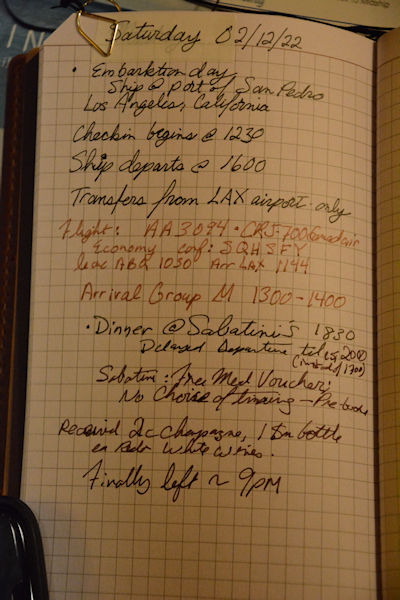 Saturday 02/12/22
• Embarktion day
Ship @ port of San Pedro
Los Angeles, California
Checkin begins @ 1230
Ship departs @ 1600
Transfers from LAX airport only
Flight: AA3094 • CRJ-700 Canadair
Economy conf: SQHSFY
leave ABQ 1050 Arr LAX 1144
Arrival Group M 1300-1400
• Dinner @ Sabatini's 1830
Delayed Departure
2000
(instead of 1700)
Sabatini: Free Med Voucher:
No Choice of timing - Pre
Received 2 Champagne, 1 5m bottle
ea Red White wines.
Finally left ~ 9PM